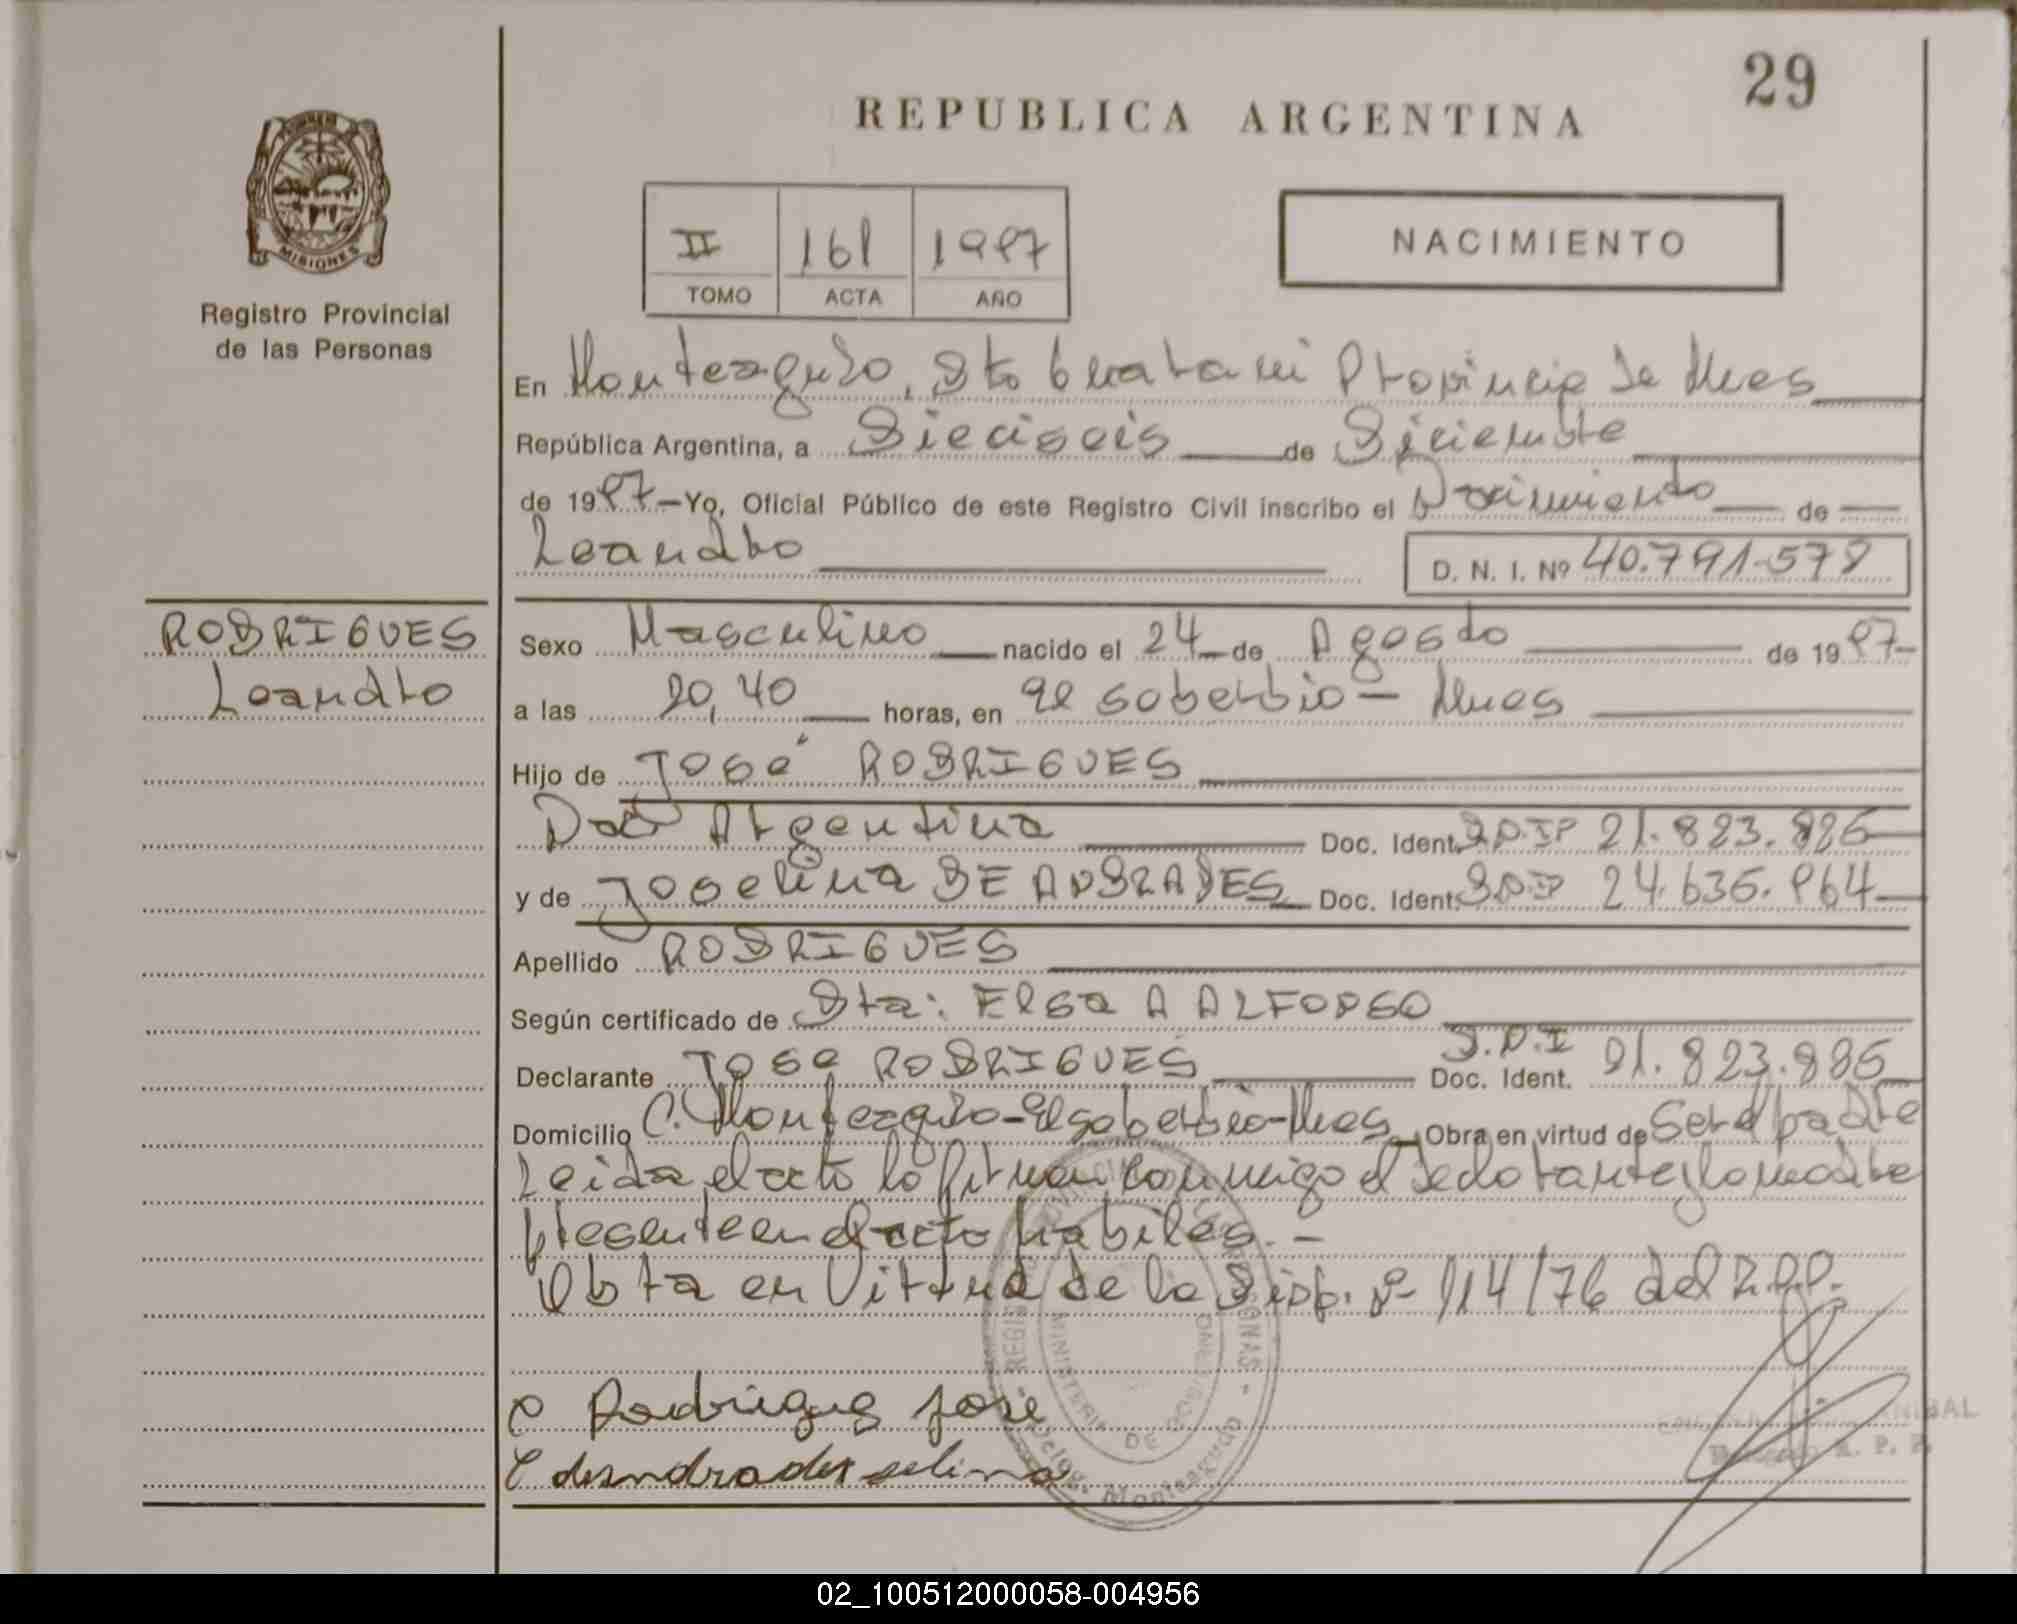 29
REPUBLICA ARGENTINA
MISIONES
Registro Provincial
de las Personas
II 161 1997
TOMO ACTA AÑO
NACIMIENTO
En Monteagudo, Dto Guarani Provincia de Mnes
República Argentina, a Dieciseis de Diciembre
de 1997 - Yo, Oficial Público de este Registro Civil inscribo el Nacimiento de
Leandro D. N. I. Nº 40.791.578
RODRIGUES
Leandro
Sexo Masculino nacido el 24 de Agosto de 1997-
a las 20,40 horas, en El soberbio - Mnes
Hijo de José RODRIGUES
Nac Argentina Doc. Ident. 21.823.886
y de Joselina DE ANDRADES Doc. Ident. 24.636.964
Apellido RODRIGUES
Según certificado de Sta: Elsa A ALFONSO
Declarante Jose RODRIGUES D.N.I Doc. Ident. 21.823.886
Domicilio C. Monteagudo - El soberbio - Mnes Obra en virtud de Ser el padre
Leida el acto lo firman conmigo el declarante y la madre
presente en el acto habiles. -
Obra en Virtud de la Disp. nº 114/76 del R.P.P.
Rodrigues Jose
deandrades selina
REGISTRO PROVINCIAL DE LAS PERSONAS -
MINISTERIO DE GOBIERNO
Deleg. Monteagudo
ANIBAL
R. P. P.
02_100512000058-004956